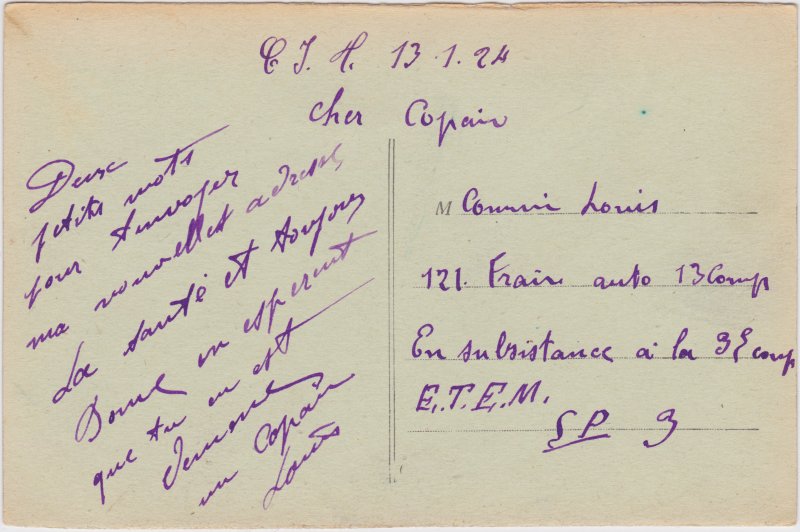 C J. H. 13.1.24
cher Copain
Deux
petits mots
pour t'envoyer
ma nouvelle adresse
La santé et toujours
Bonne en esperent
que tu en est
de meme
un Copain
Louis
M Connin Louis
121. Train auto 13 Comp
En subsistance a la 9E comp
E.T.E.M.
SP 9